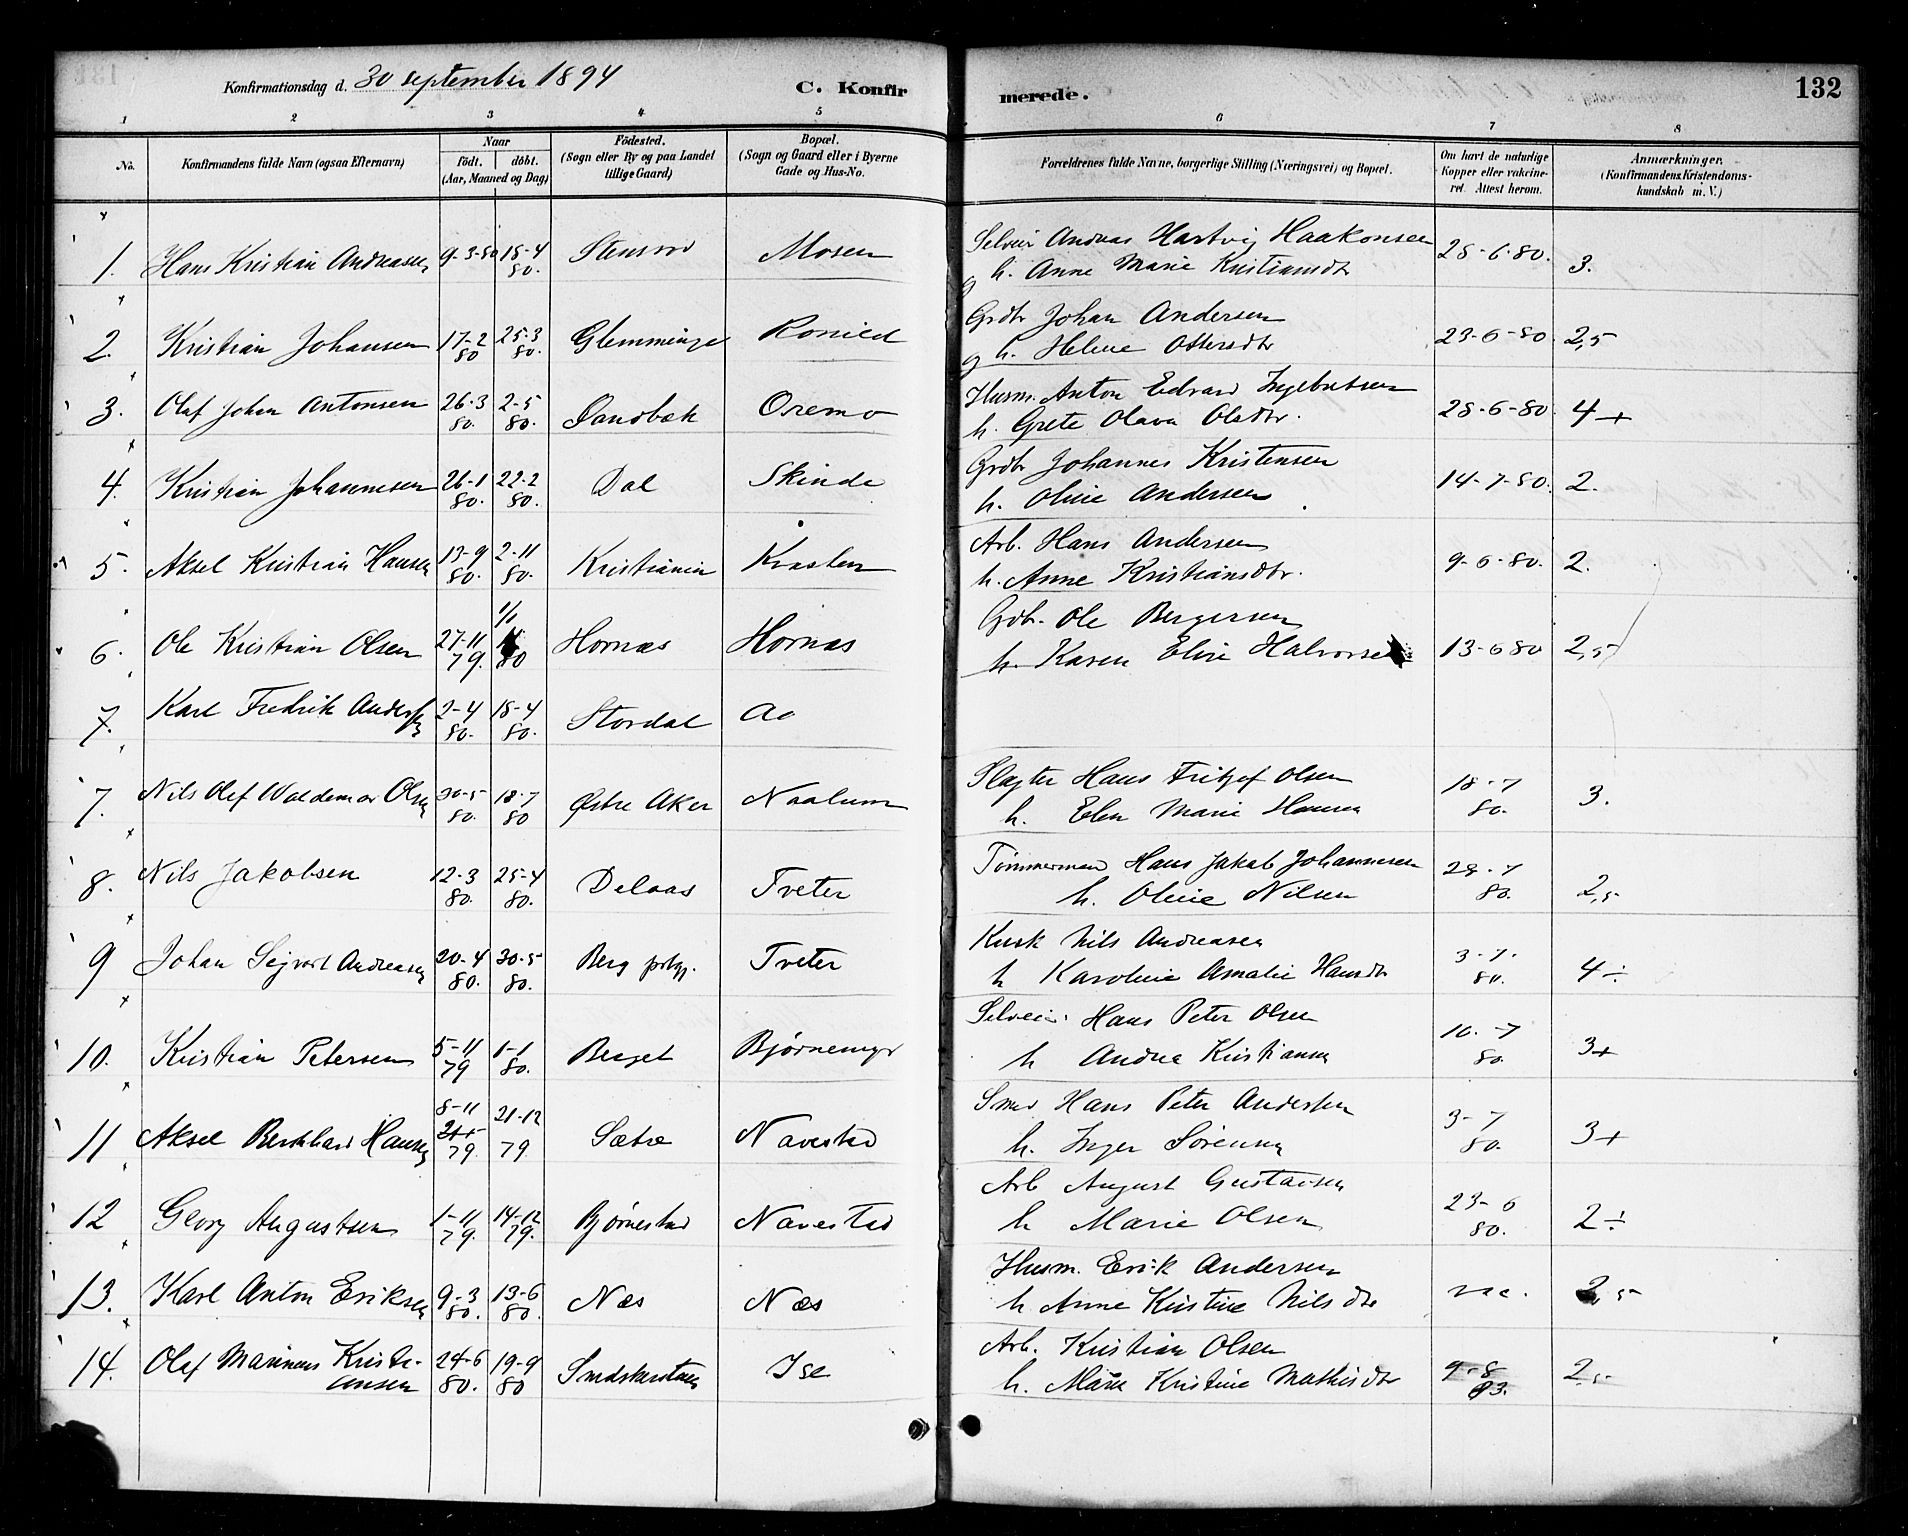 Konfirmationsdag d. 30 september 1894 C. Konfirmerede. 132
1 2 3 4 5 6 7 8
No. Konfirmandens fulde Navn (ogsaa Efternavn) Naar født. døbt. (Aar, Maaned og Dag) Fødested. (Sogn eller By og paa Landet tillige Gaard) Bopæl. (Sogn og Gaard eller i Byerne Gade og Hus-No. Forældrenes fulde Navne, borgerlige Stilling (Næringsvei) og Bopæl. Om havt de naturlige Kopper eller vakcineret. Attest herom. Anmærkninger. (Konfirmandens Kristendomskundskab m. V.)
1. Hans Kristian Andreasen 9-3-80 18-4 80. Stensrød Mosen Selveier Andreas Hartvig Haakonsen
g h. Anne Marie Kristiansdtr 25-6-80. 3.
2. Kristian Johansen 17-2 80 25-3 80. Glemminge Grdbr Johan Andersen
g h. Helene Ottersdtr 23-6-80 2,5
3. Olaf Johan Antonsen 26-3 80. 2-5 80. Sandbæk Oremo Husm. Anton Edvard Ingebretsen
h. Grete Olava Olsdtr. 28-6-80 4+
4. Kristian Johannesen 26-1 80. 22-2 80. Dal Skinde Grdbr Johannes Kristensen
h. Oline Andersen 14-7-80. 2.
5. Aksel Kristian Hansen 13-9 80. 2-11 80. Kristiania Arb. Hans Andersen
h. Anne Kristiansdtr. 9-6-80. 2.
6. Ole Kristian Olsen 27-11 79. 1/1 80 Hornæs Hornæs Gdb. Ole Bergersen
h. Karen Elise Halvorsen 13-6 80 2,5
7. Karl Fredrik Andersen 2-4 80. 18-4 80. Stordal Aa
7. Nils Olef Waldemar Olsen 30-5 80. 18-7 80 Østre Aker Naalum Slagter Hans Fritjof Olsen
h. Elen Marie Hansen 18-7 80. 3.
8. Nils Jakobsen 12-3 80. 25-4 80. Delaas Tveter Tømmermand Hans Jakob Johannesen
h. Oline Nilsen 80. 2,5
9 Johan Sigvart Andreasen 20-4 80. 30-5 80. Berg prstgj. Tveter Kusk Nils Andreasen
h Karoline Amalie Hansdtr 3-7. 80. 4÷
10. Kristian Petersen 5-11 79 1-1 80. Berget Bjørnemyr Selveier Hans Peter Olsen
h Andrea Kristiansen 10.-7 80. 3+
11 Aksel Bernhard Hansen 8-11 79. 21-12 79 Sætre Navestad Smed Hans Peter Andersen
h. Inger Sørensen 3-7 80. 3+
12 Georg Augustsen 1-11 79. 14-12 79. Bjørnstad Navestad Arb August Gustavsen
h Marie Olsen 23-6 80. 2÷
13. Karl Anton Eriksen 9-3 80. 13-6 80. Næs Næs Husm. Erik Andersen
h Anne Kristine Nilsdtr vac. 2,5
14. Olaf Marinius Kristiansen 24-6 80. 19-9 80 Ise Arb. Kristian Olsen
h. Marie Kristine Mathisdtr 9-8 93. 2,5